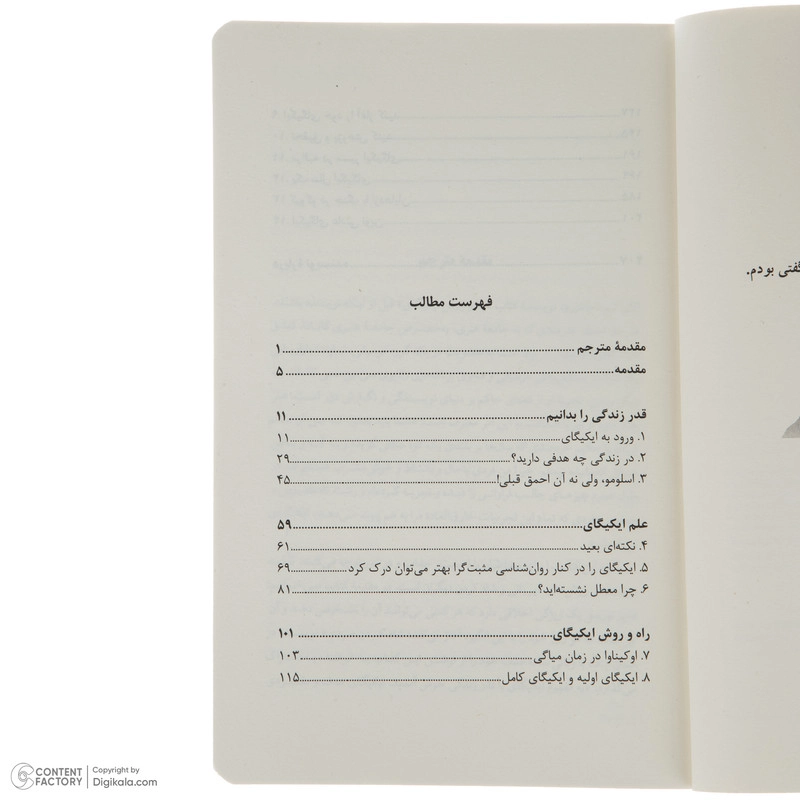 گفتی بودم.
فهرست مطالب
مقدمهٔ مترجم ۱
مقدمه ۵
قدر زندگی را بدانیم ۱۱
۱. ورود به ایکیگای ۱۱
۲. در زندگی چه هدفی دارید؟ ۲۹
۳. اسلومو، ولی نه آن احمق قبلی! ۴۵
علم ایکیگای ۵۹
۴. نکته‌ای بعید ۶۱
۵. ایکیگای را در کنار روان‌شناسی مثبت‌گرا بهتر می‌توان درک کرد ۶۹
۶. چرا معطل نشسته‌اید؟ ۸۱
راه و روش ایکیگای ۱۰۱
۷. اوکیناوا در زمان میاگی ۱۰۳
۸. ایکیگای اولیه و ایکیگای کامل ۱۱۵
CONTENT FACTORY
Copyright by
Digikala.com